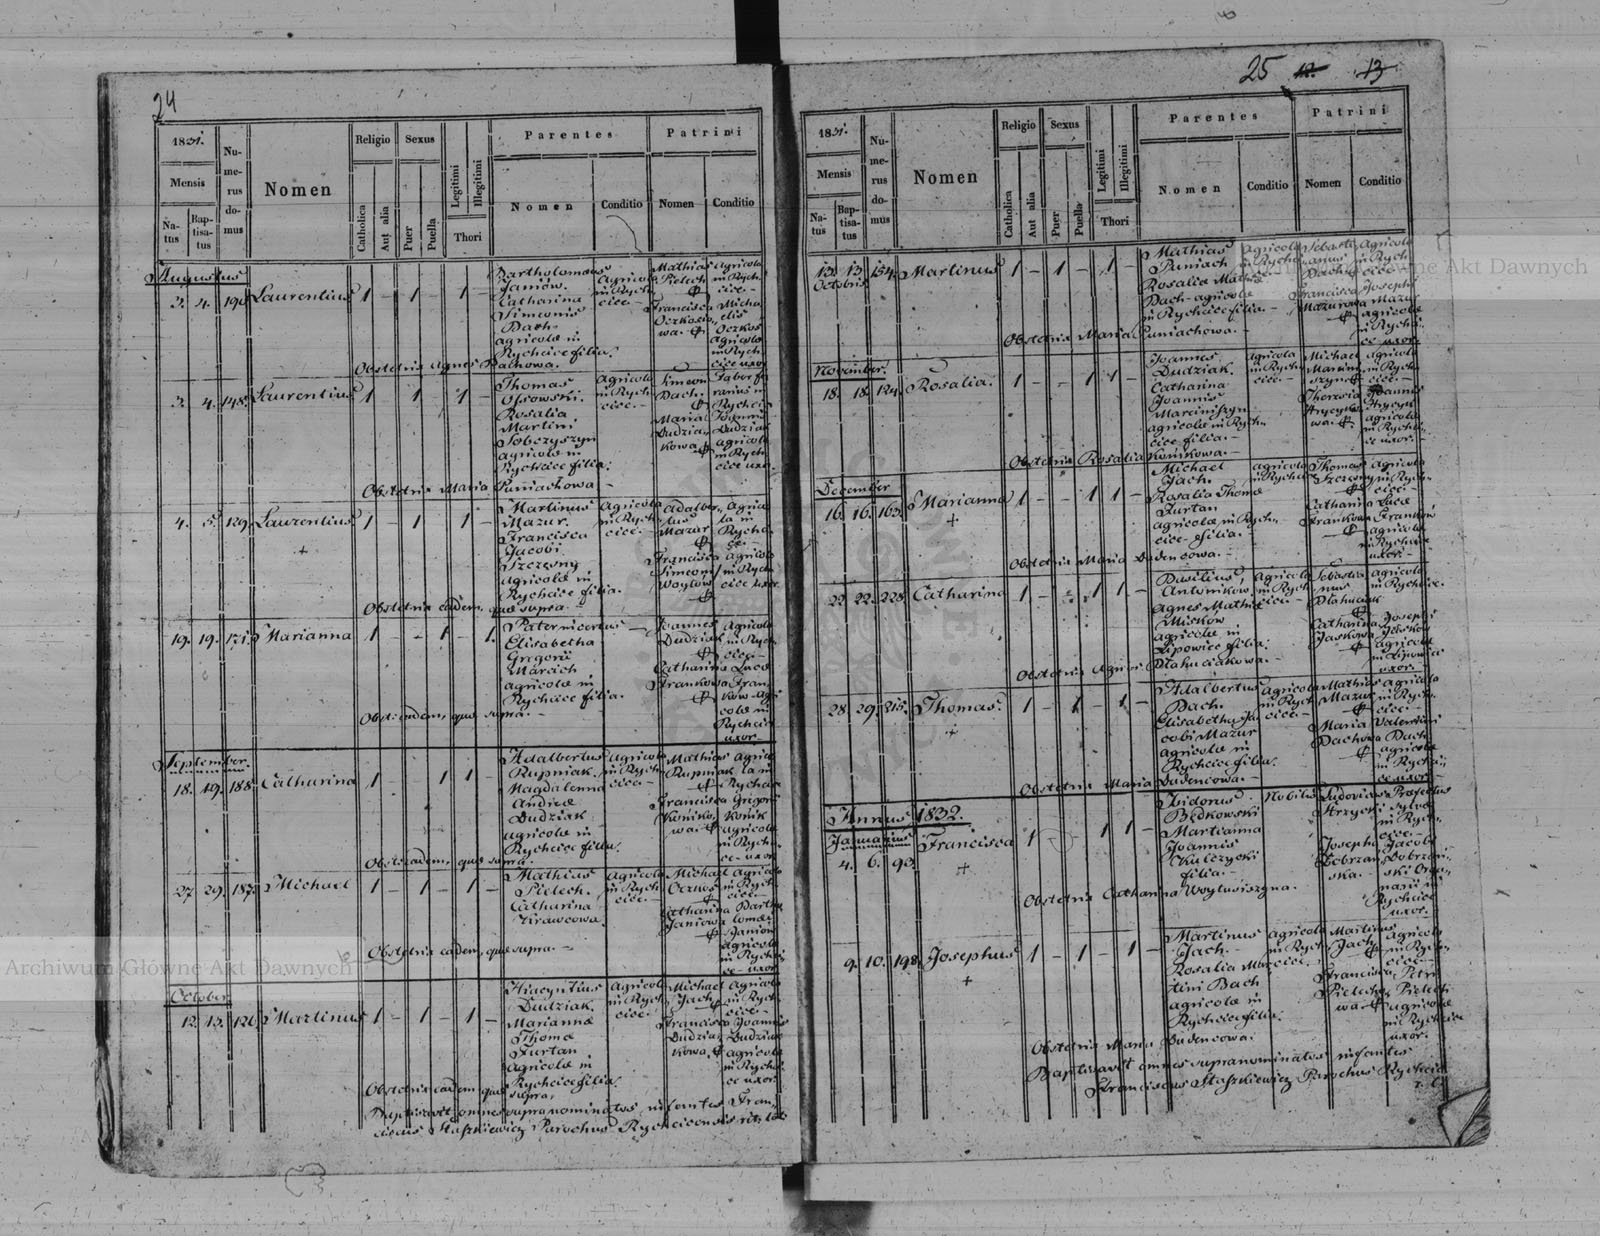 24
1831.
Mensis
Na-
tus
Bap-
tisa-
tus
Nu-
me-
rus
do-
mus
Nomen
Religio
Catholica
Aut alia
Sexus
Puer
Puella
Legitimi
Illegitimi
Thori
Parentes
Nomen
Conditio
Patrini
Nomen
Conditio
Augustus
3. 4. Laurentius 1 – 1 – 1 –
Bartholomæus
Janiow.
Catharina
Simeonis
Dach
agricolæ in
Rychcice filia.
Agricola
in Rych
cice.
Mathias
Pielech
Francisca
Oczkosio
wa.
Agricola
in Rych
cice.
Micha
elis
Oczkos
Agricolæ
in Rych
cice uxor
Obstetrix Agnes Dachowa.
3. 4. 148. Laurentius 1 1 1
Thomas
Ossowski.
Rosalia
Martini
Sobczyszyn
agricolæ in
Rychcice filia.
Agricola
in Rych
cice.
Simeon
Dach.
Maria
Dudzia
kowa
Obstetrix Maria Puniachowa
4. 5. 129. Laurentius 1 – 1 1 –
+
Martinus
Mazur.
Francisca
Jacobi
Szczęsny
agricolæ in
Rychcice filia.
Agricola
in Rych
cice.
Adalber
tus
Mazur
Francisca
Simeonis
Woytow
Agrico
la in
Rychci
ce.
agricolæ
in Rych
cice uxor
Obstetrix eadem, quæ supra.
19. 19. 171. Marianna 1 – – 1 – 1.
Pater incertus
Elisabetha
Gregorii
Marcich
agricolæ in
Rychcice filia.
Joannes
Dudziak
Catharina
Frankowa
Agricola
in Rych
cice.
Lucæ
Fran
kow agri
colæ in
Rychcice
uxor
Obst: eadem, quæ supra.
September.
18. 19. 188. Catharina 1 1 1 –
Adalbertus
Rupniak.
Magdalena
Andreæ
Dudziak
agricolæ in
Rychcice filia.
Agricola
in Rych
cice.
Mathias
Rupniak
Francisca
Koniko
wa.
Agrico
la in
Rychcice
Gregorii
Konik
agricolæ
in Rych
ce uxor
Obst: eadem, quæ supra.
27. 29. 187. Michael 1 – 1 – 1 –
Mathias
Pielech.
Catharina
Krawcowa
Agricola
in Rych
cice.
Michael
Oczkos
Catharina
Janiowa
Agricola
in Rych
cice.
Bartho
lomæi
Janiow
agricolæ
in Rychci
ce uxor
Obstetrix eadem, quæ supra.
October
12. 13. 126. Martinus 1 – 1 – 1 –
Hiacyntius
Dudziak.
Marianna
Thomæ
Furtan
agricolæ in
Rychcice filia.
Agricola
in Rych
cice.
Michael
Jach
Francisca
Dudzia
kowa
Agricola
in Rych
cice.
Joannis
Dudziak
agricolæ
in Rychci
ce uxor.
Obstetrix eadem, quæ supra.
Baptisavit omnes supra nominatos infantes Fran
ciscus Staszkiewicz Parochus Rychcicensis rit: lat:
25 12. 13
1831.
Mensis
Na-
tus
Bap-
tisa-
tus
Nu-
me-
rus
do-
mus
Nomen
Religio
Catholica
Aut alia
Sexus
Puer
Puella
Legitimi
Illegitimi
Thori
Parentes
Nomen
Conditio
Patrini
Nomen
Conditio
13. 13. 154. Martinus 1 – 1 – 1 –
Octobris
Mathias
Puniach
Rosalia Mathiæ
Dach agricolæ
in Rychcice filia.
Agricola
in Rychci
Sebasti
anus
Dach
Francisca
Mazurowa
Agricola
in Rych
cice.
Josephi
Mazur
agricolæ
in Rychci
ce uxor.
Obstetrix Maria Puniachowa.
November.
18. 18. 124. Rosalia. 1 – – 1 1 –
Joannes
Dudziak.
Catharina
Joannis
Marciniszyn
agricolæ in Rych
cice filia.
Agricola
in Rych
cice.
Michael
Marcini
szyn
Theresia
Agricola
in Rych
cice.
Joannis
agricolæ
in Rychci
ce uxor.
Obstetrix Rosalia Konikowa.
December
16. 16. 163. Marianna 1 – – 1 1 –
+
Michael
Jach.
Rosalia Thomæ
Furtan
agricolæ in Rych
cice filia.
Agricola
in Rychci
Thomas
Szczęsny
Catharina
Frankowa
Agricola
in Rych
cice.
Lucæ
Frankow
agricolæ
in Rychcice
uxor.
Obstetrix Maria Dudencowa.
22. 22. 228. Catharina 1 – – 1 1 –
Basilius
Antonikow
Agnes Mathiæ
Miskow
agricolæ in
Lipowice filia.
Agricola
in Rych
cice.
Sebastia
nus
Dłahuciak
Catharina
Jaskowa
Agricola
in Rychcice.
Josephi
Jaskow
agricolæ
in Lipowice
uxor.
Obstetrix Agnes Dłahuciakowa.
28. 29. 215. Thomas. 1 – 1 – 1 –
+
Adalbertus
Dach.
Elisabetha Ja
cobi Mazur
agricolæ in
Rychcice filia.
Agricola
in Rych
cice.
Mathias
Mazur
Maria
Dachowa
Agricola
in Rych
cice.
Valentini
Dach
agricolæ
in Rychci
ce uxor
Obstetrix Maria Dudencowa.
Annus 1832.
Januarius
4. 6. 90. Francisca 1 1 1 –
+
Isidorus
Będkowski
Marianna
Joannis
Kulczycki
filia.
Nobilis
Ludovicus
Strzycki
Josepha
Dobrzań
ska.
Præfectus
sylvæ
in Rych
cice.
Jacobi
Dobrzań
ski Orga
narii in
Rychcice
uxor.
Obstetrix Catharina Woytusiszyna.
9. 10. 198. Josephus 1 – 1 – 1 –
+
Martinus
Jach.
Rosalia Mar
tini Bach
agricolæ in
Rychcice filia.
Agricola
in Rych
cice.
Martinus
Jach
Francisca
Pielecho
wa
Agricola
in Rych
cice.
Petri
Pielech
agricolæ
in Rychcice
uxor.
Obstetrix Maria Dudencowa.
Baptisavit omnes supranominatos infantes
Franciscus Staszkiewicz Parochus Rychcic:
r. l.
Archiwum Główne Akt Dawnych
Archiwum Główne Akt Dawnych